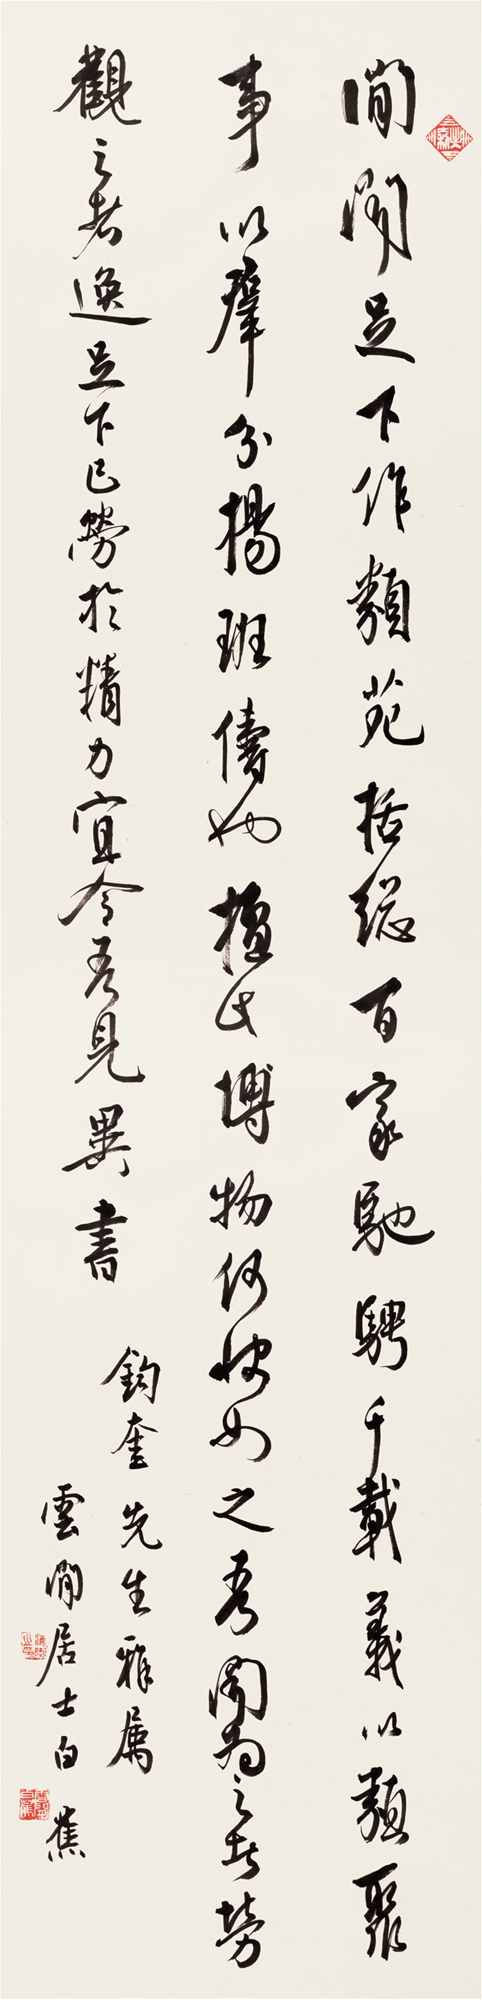 間聞足下作類苑括總百家馳騁千載義以類聚
事以羣分揚班儔也擅此博物何快如之吾聞為之者勞
觀之者逸足下已勞於精力宜令吾見異書
鈞奎先生雅屬
雲間居士白蕉